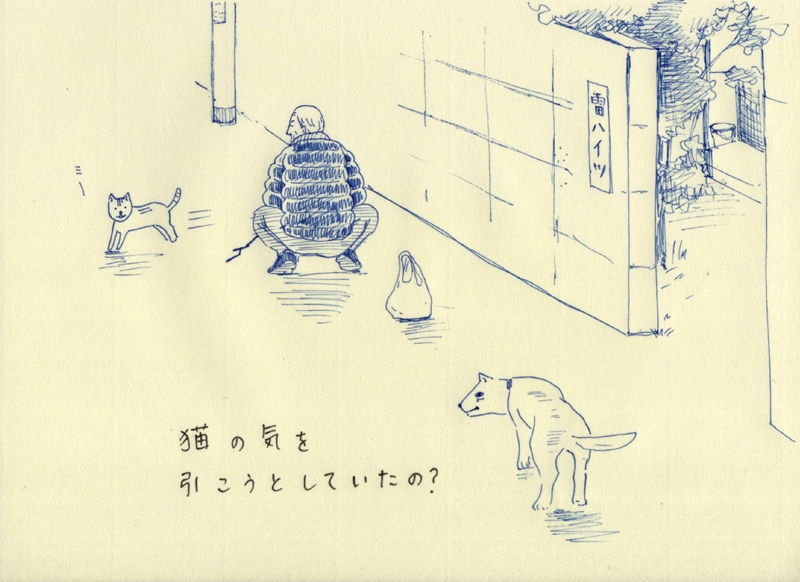 雷ハイツ
猫の気を
引こうとしていたの?